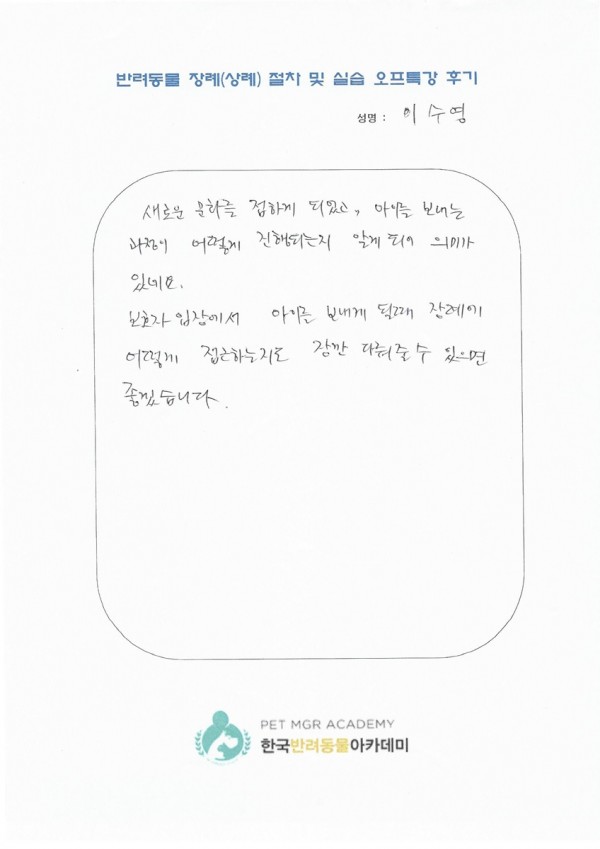 반려동물 장례(상례) 절차 및 실습 오프특강 후기
성명 : 이수영
새로운 문화를 접하게 되었고, 아이를 보내는
과정이 어떻게 진행되는지 알게 되어 의미가
있네요.
보호자 입장에서 아이를 보내게 될때 장례에
어떻게 접근하는지도 잠깐 다뤄줄 수 있으면
좋겠습니다.
PET MGR ACADEMY
한국반려동물아카데미